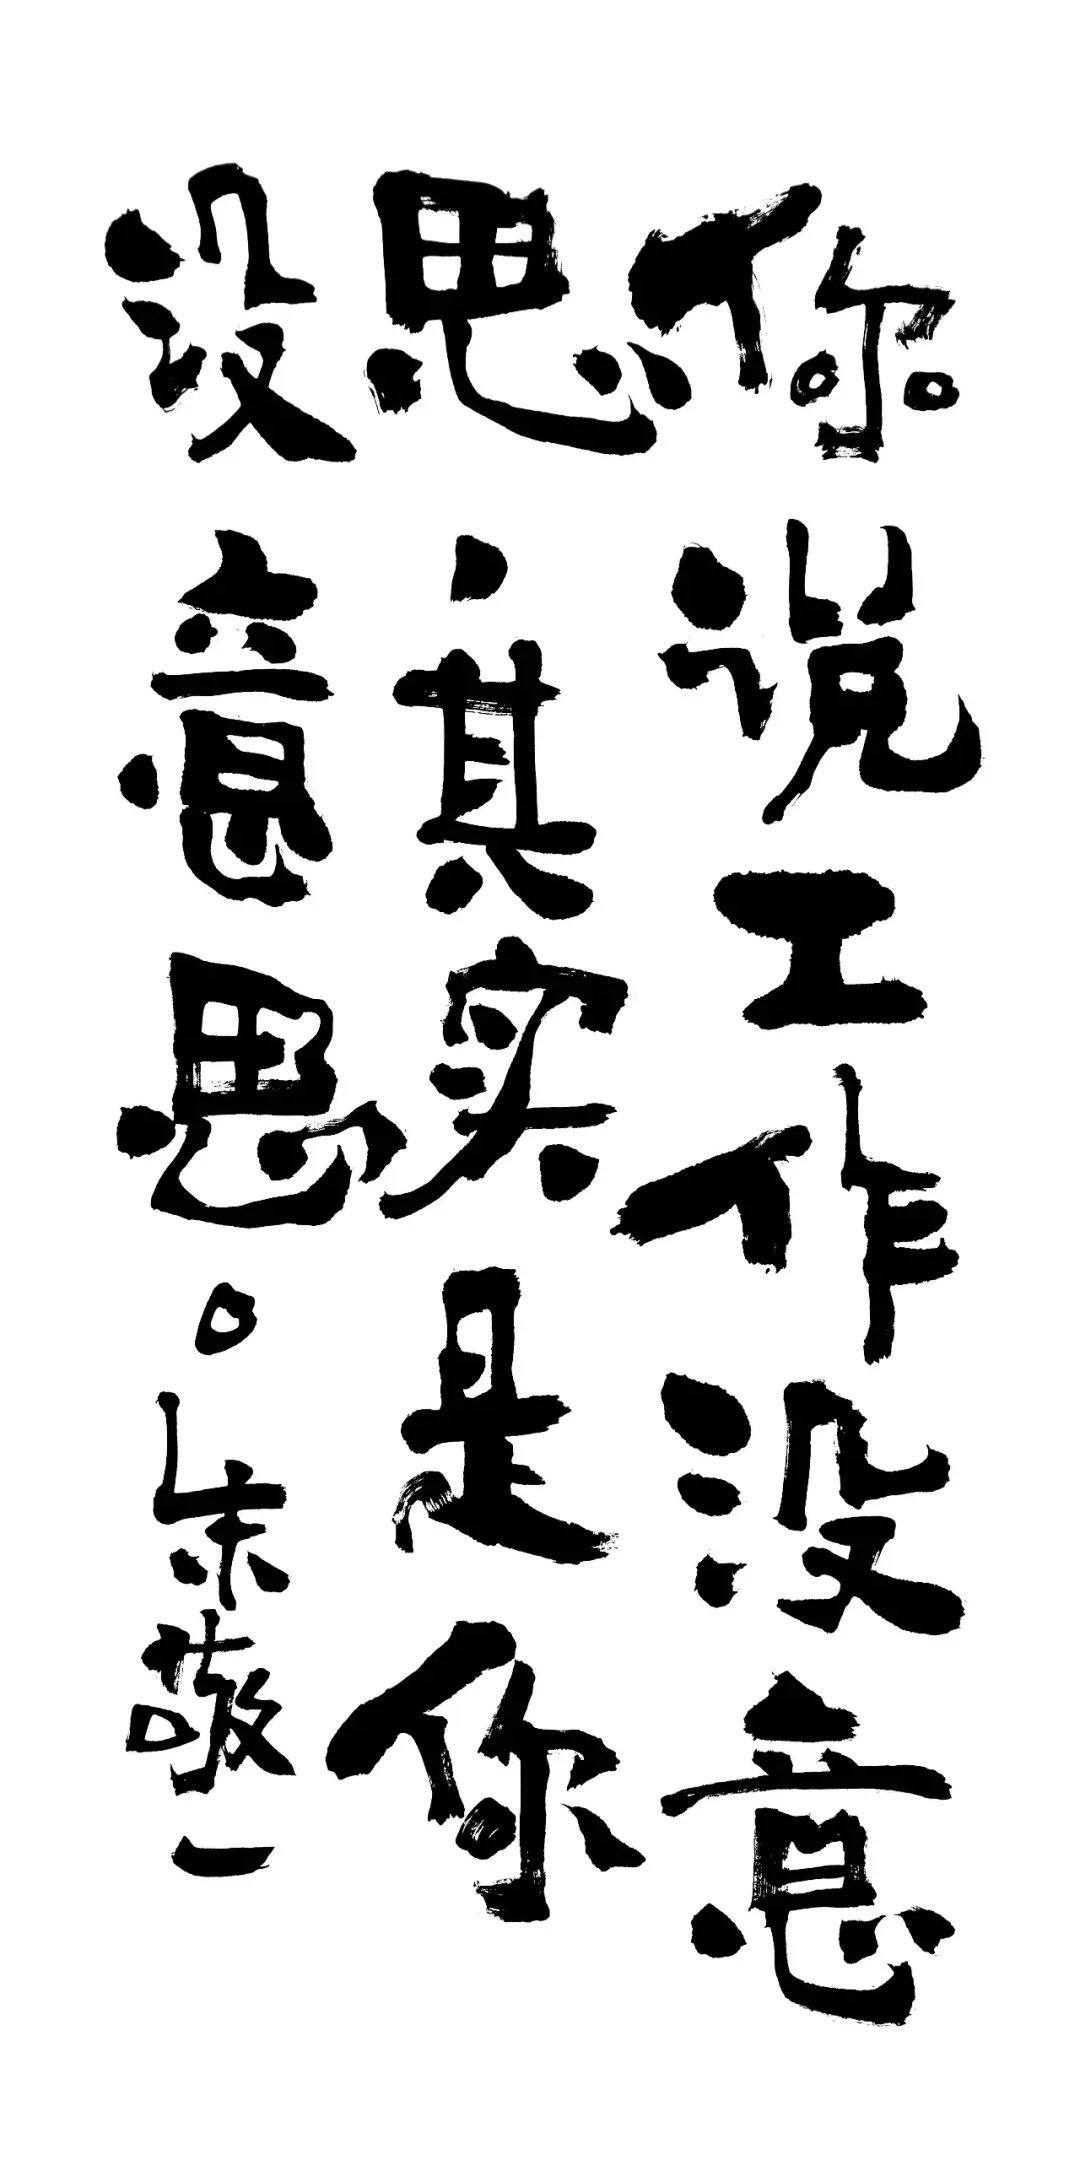 你说工作没意
思，其实是你
没意思。朱敬一